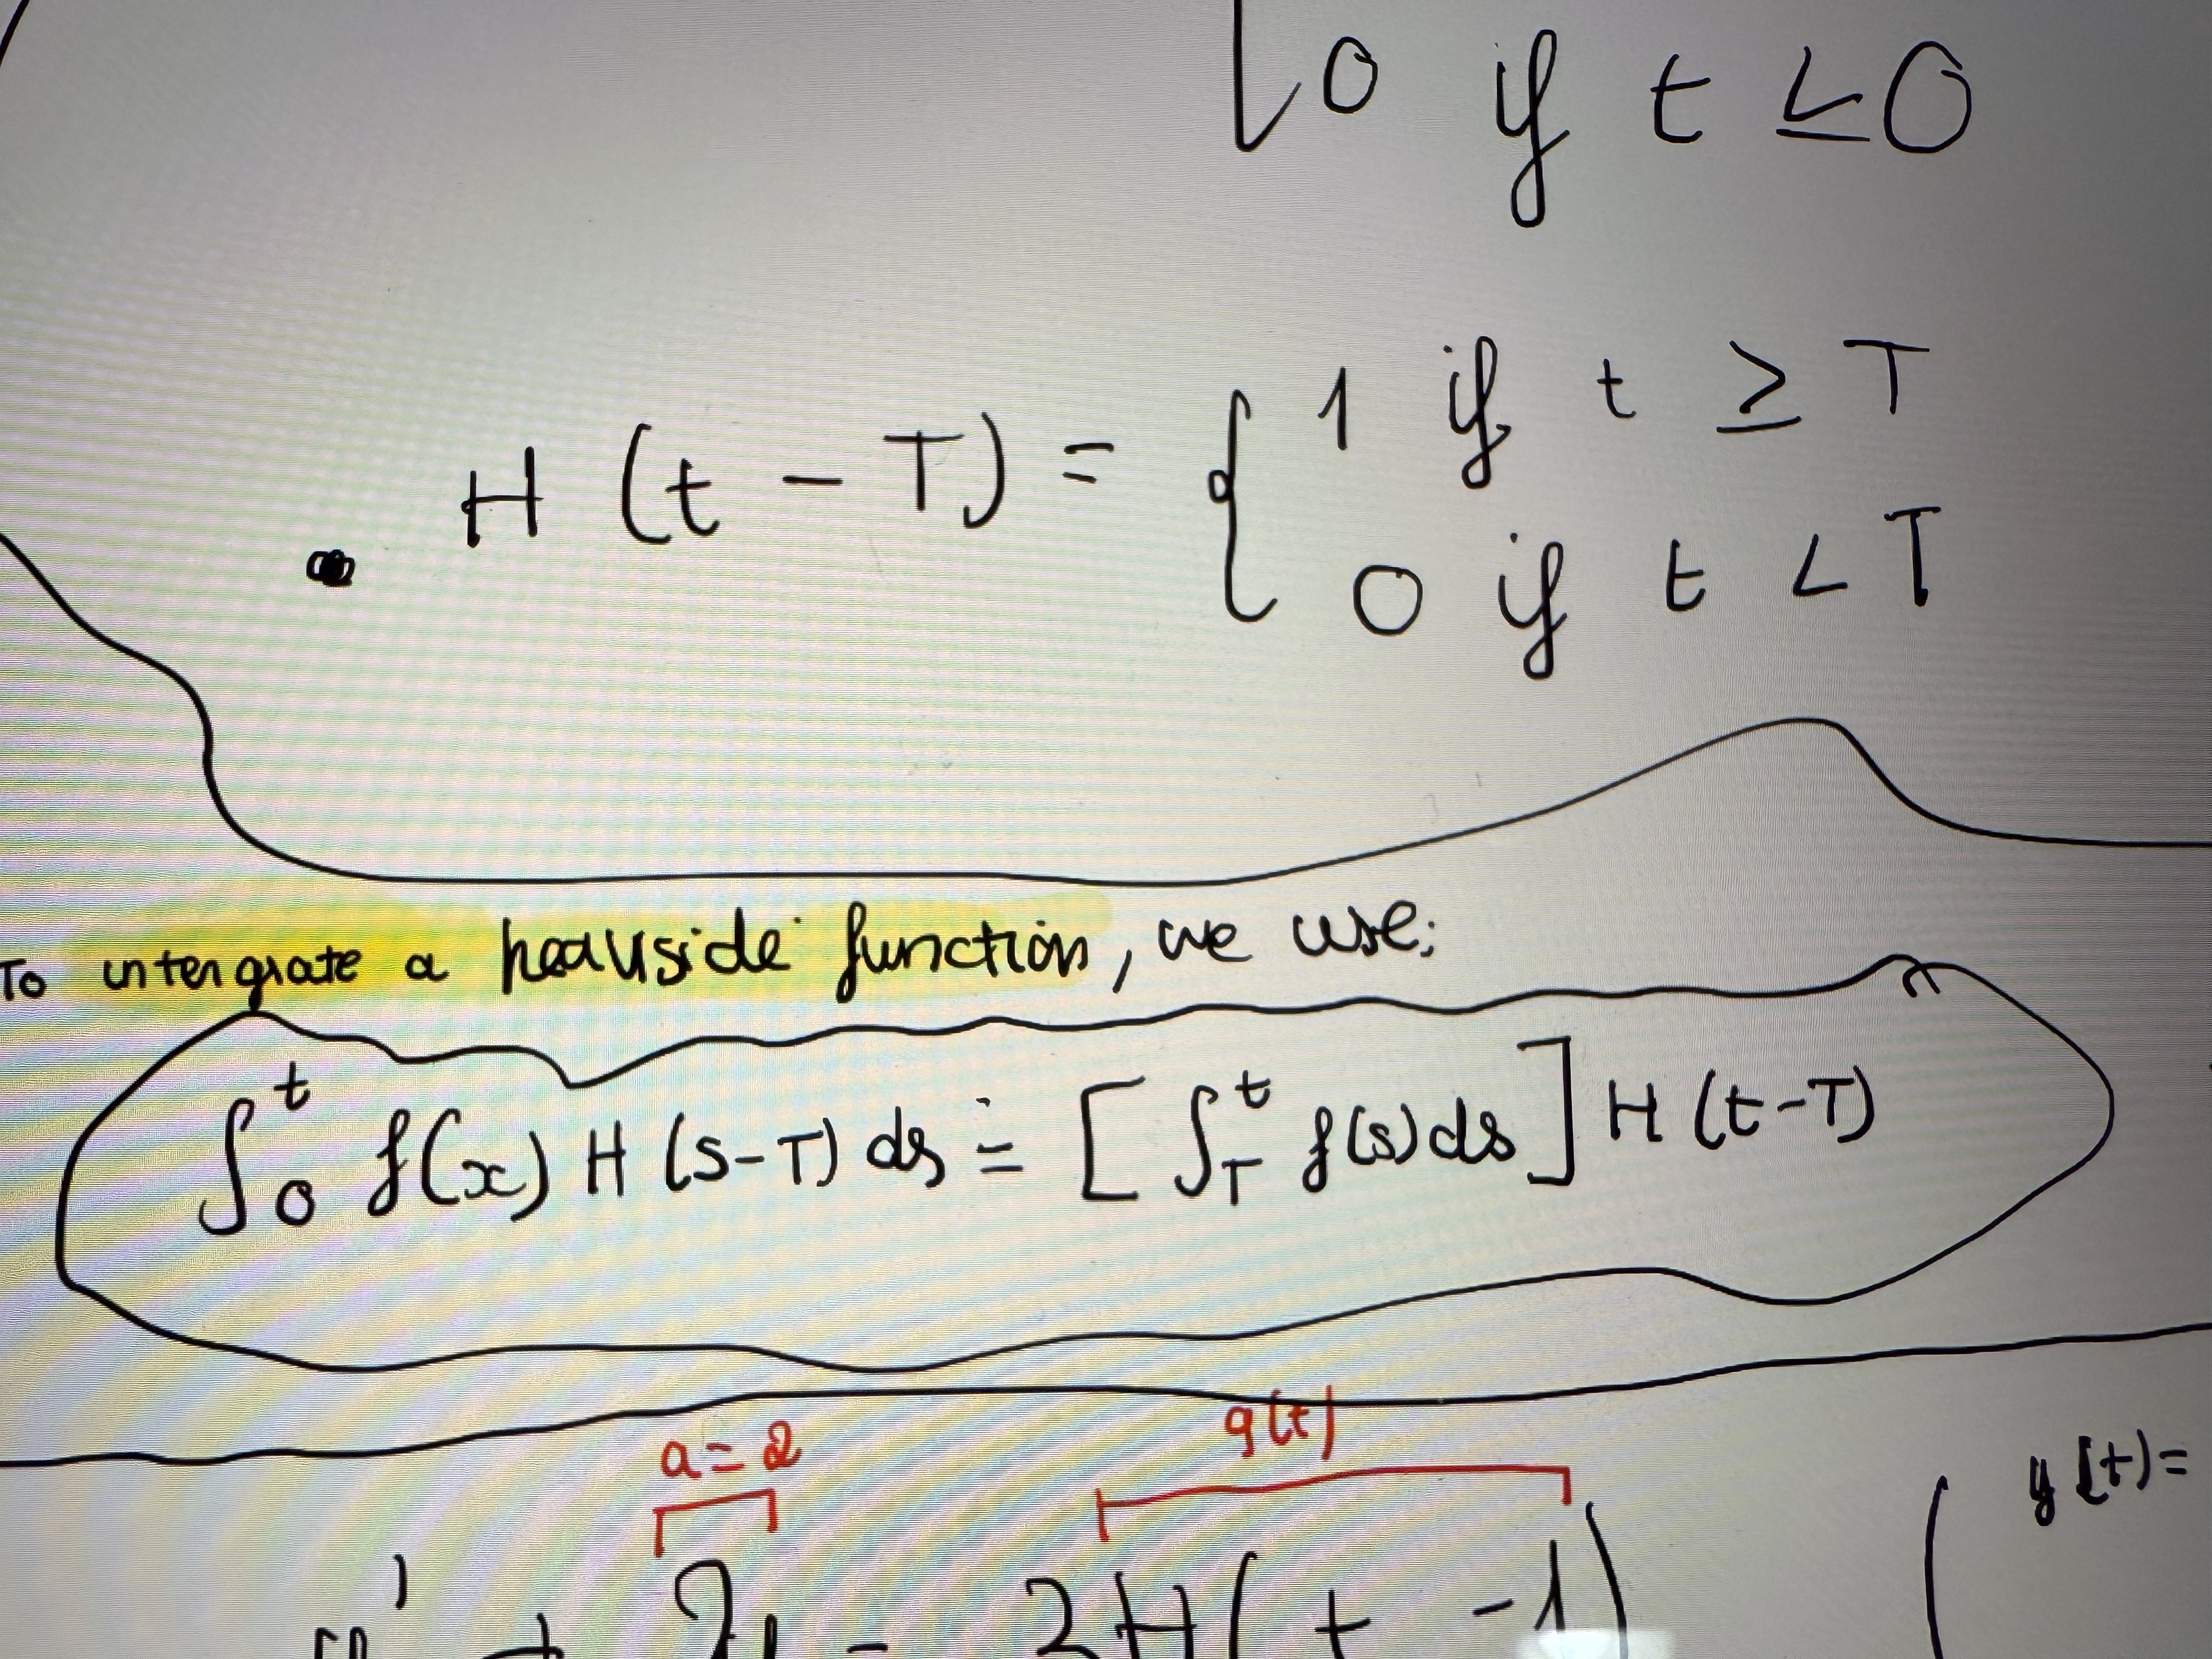 0 if t ≤ 0
H (t - T) = { 1 if t ≥ T
0 if t < T
To intengrate a heauside function, we use:
∫₀ᵗ f(x) H (s-T) ds = [ ∫_Tᵗ f(s) ds ] H (t-T)
a = 2 g(t)
y(t) =
2H(t - 1)